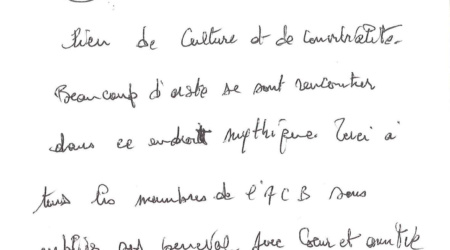 lieu de Culture et de convivialité.
Beaucoup d'artiste se sont rencontrer
dans ce endroit mythique. Merci à
tous les membres de l'ACB sans
oublier Avec Cœur et amitié